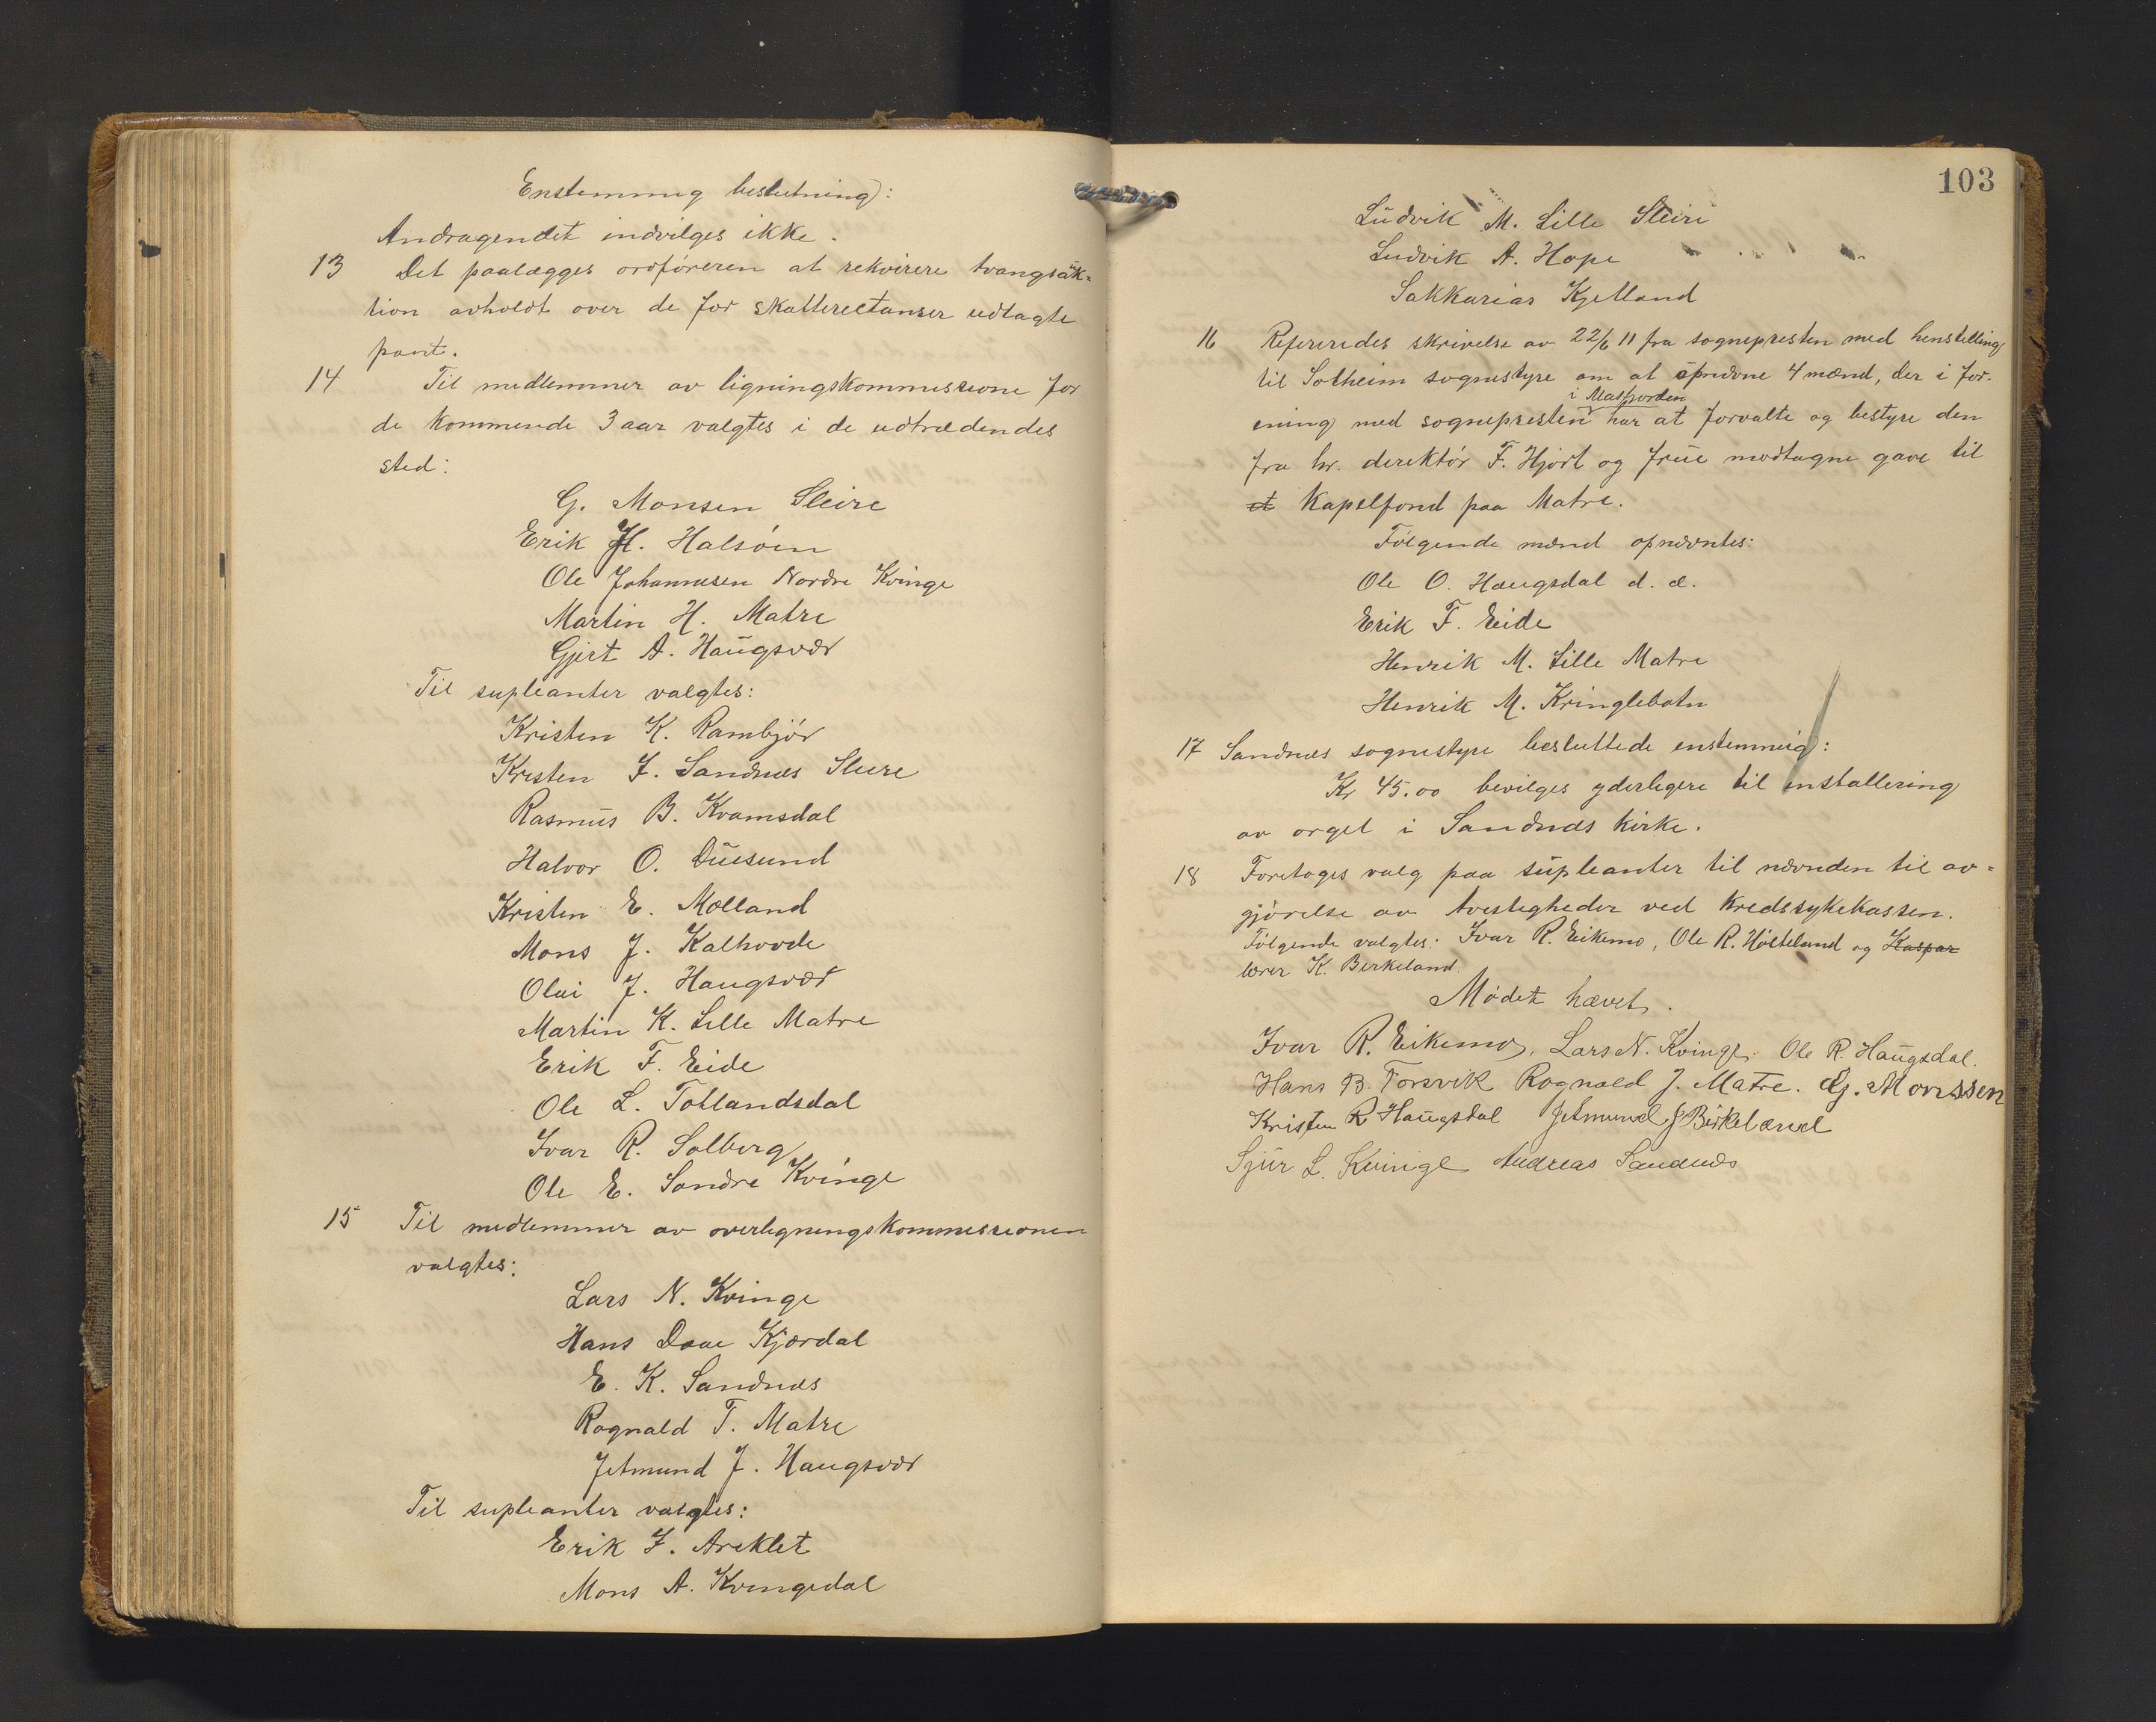 Enstemmig beslutning:
Andragendet indvilges ikke.
13 Det paalægges ordføreren at rekvirere tvangsauk-
tion avholdt over de for skatterestanser udtagte
pant.
14 Til medlemmer av ligningskommissione for
de kommende 3 aar valgtes i de udtrædendes
sted:
G. Monsen Sleire
Erik H. Halsøen
Ole Johannesen Nordre Kvinge
Martin H. Matre
Gjert A. Haugsvær
Til supleanter valgtes:
Kristen K. Rambjør
Kristen J. Sandnes Sleire
Rasmus B. Kvamsdal
Halvor O. Duesund
Kristen E. Molland
Mons J. Kalhovde
Olai J. Haugsvær
Martin K. Lille Matre
Erik F. Eide
Ole L. Totlandsdal
Ivar R. Solberg
Ole E. Søndre Kvinge
15 Til medlemmer av overligningskommissionen
valgtes:
Lars N. Kvinge
Hans Daae Kjærdal
E. K. Sandnes
Ragnald T. Matre
Jetmund J. Haugsvær
Til supleanter valgtes:
Erik J. Areklet
Mons A. Kvingedal
103
Ludvik M. Lille Sleire
Ludvik A. Hope
Sakkarias Kjetland
16 Refereredes skrivelse av 22/6 11 fra sognepresten med henstilling
til Solheim sognestyre om at opnævne 4 mænd, der i for-
i Masfjorden
ening med sognepresten har at forvalte og bestyre den
fra hr. direktør F. Hjort og frue modtagne gave til
et Kapelfond paa Matre.
Følgende mænd opnævntes:
Ole O. Haugsdal d. æ.
Erik F. Eide
Henrik M. Lille Matre
Henrik M. Kringlebotn
17 Sandnes sognestyre besluttede enstemmig:
Kr 45.00 bevilges yderligere til installering
av orgel i Sandnes kirke.
18 Foretoges valg paa supleanter til nævnden til av-
gjørelse av tvistigheder ved kredssykekassen.
Følgende valgtes: Ivar R. Eikemo, Ole R. Høsteland og Kaspar
lærer K. Birkeland.
Mødet hævet.
Ivar R. Eikemo, Lars N. Kvinge. Ole R. Haugsdal.
Hans B. Forsvik Ragnald J. Matre. G. Monssen
Kristen R Haugsdal Jetmund J Birkeland
Sjur L. Kvinge Andreas Sandnes